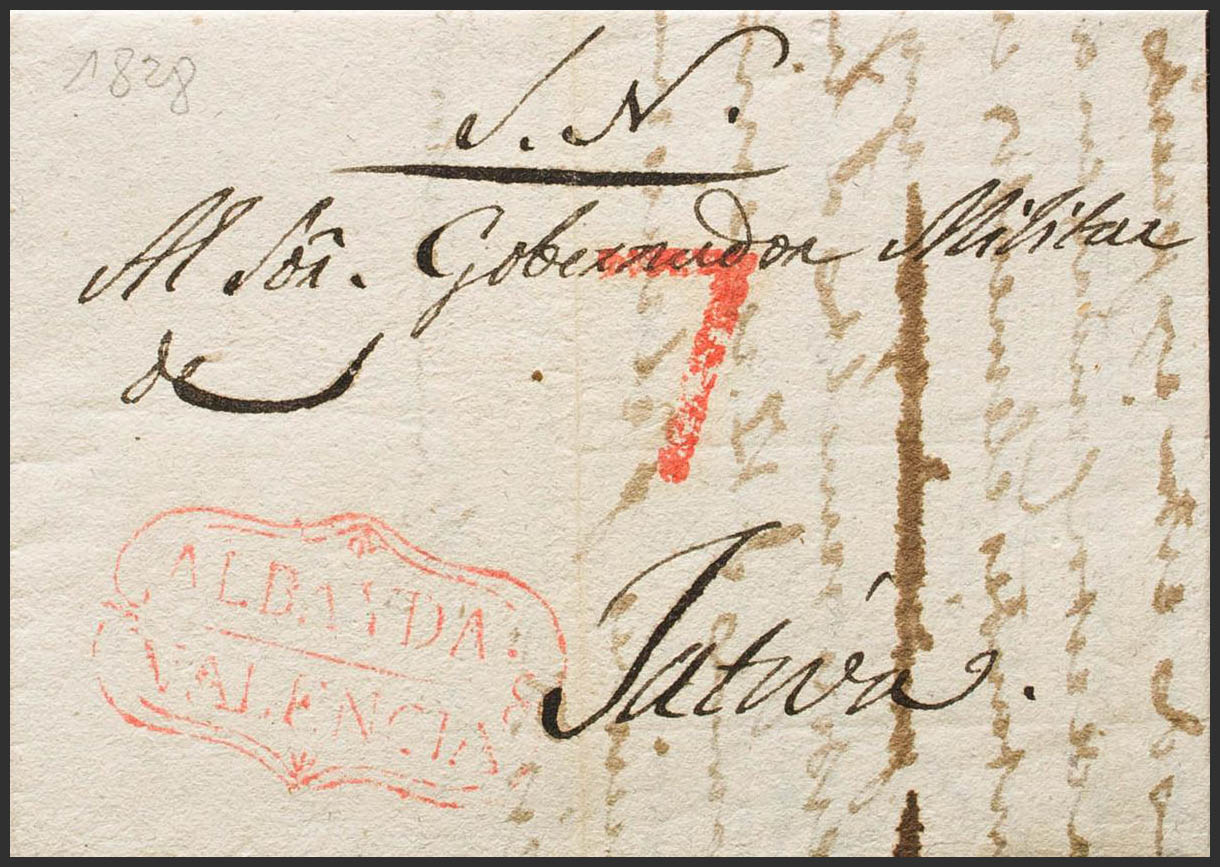 1828
S. N.
Al Sõr. Gobernador Militar
de
7
ALBAYDA.
VALENCIA
Jativa.